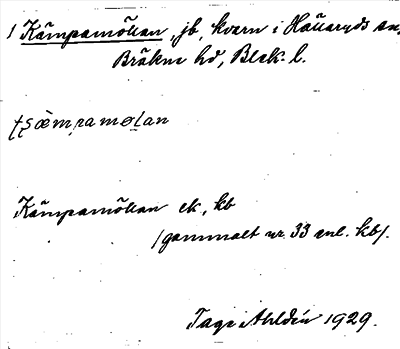 1 Kämpamöllan, jb, kvarn i Hällaryds sn,
Bräkne hd, Blek. l.
Kämpamöllan ek, kb
/gammalt nr 33 enl. kb/.
Tage Ahldén 1929.